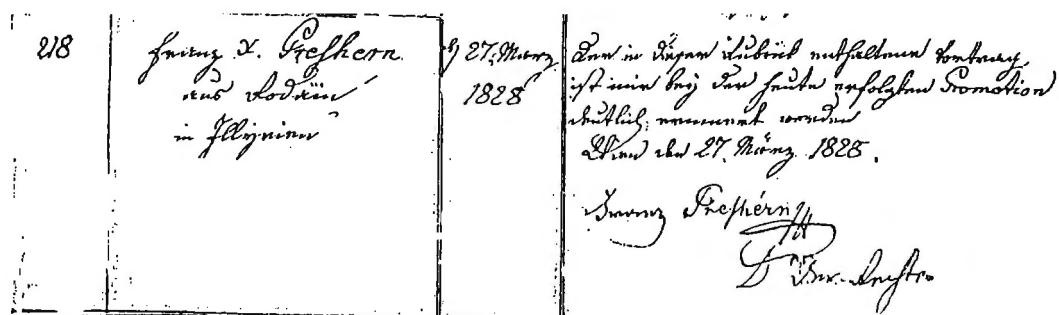 218
Franz X. Preshern
aus Rodain
in Illyrien
27. März
1828
Der in dieser Rubrik enthaltene Vortrag
ist mir bey der heute erfolgten Promotion
deutlich erinnert worden
Wien den 27. März 1828.
Franz Preshérn
D der Rechte